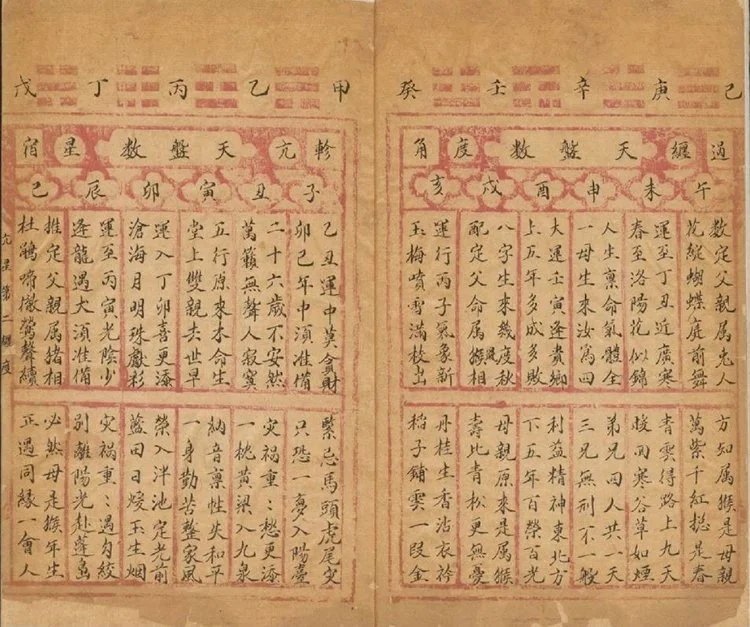 己庚辛壬癸
過纏天盤數度角
午未申酉戌亥
數定父親属兔人
花綻蝴蝶庭前舞
運至丁丑近廣寒
春至洛陽花似錦
人生禀命氣體全
一母生來汝為四
大運壬寅逢貴鄉
上五年多成多敗
八字生來幾度秋
風
配定父命属猴相
運行丙子氣象新
玉梅噴雪滿枝出
方知属猴是母親
萬紫千紅總是春
青雲得路上九天
暖回寒谷草如煙
弟兄四人共一天
三兄無刑不一般
利益精神東北方
下五年百榮百光
母親原來是属猴
壽比青松更無憂
丹桂生香沾衣衿
稻子鋪雲一段金
甲乙丙丁戊
軫亢天盤數星宿
子丑寅卯辰巳
乙丑運中莫貪財
卯巳年中須准備
二十六歲不安然
萬籟無聲人寂寞
五行原來木命生
堂上雙親去世早
運入丁卯喜更添
滄海月明珠獻彩
運至丙寅光陰少
逢龍遇犬須准備
推定父親属猪相
杜鵑啼徹鶯聲續
緊忌馬頭虎尾灾
只恐一夢入陽臺
灾禍重:愁更添
一桃黃梁入九泉
納音禀性失和平
一身勤苦整家風
榮入泮池定光前
藍田日暖玉生烟
灾禍重:遇勾絞
别離陽光赴蓬島
必然母是猴年生
正遇同缘一會人
亢星第二纏度